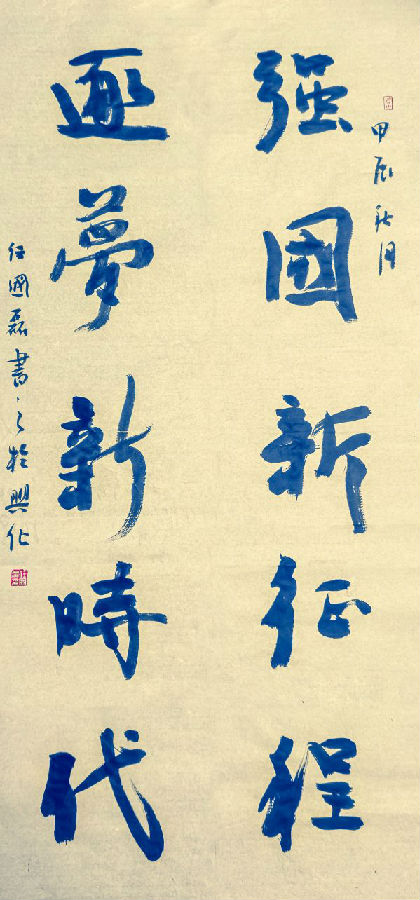 甲辰秋月
强國新征程
逐夢新時代
任國磊書之於興化